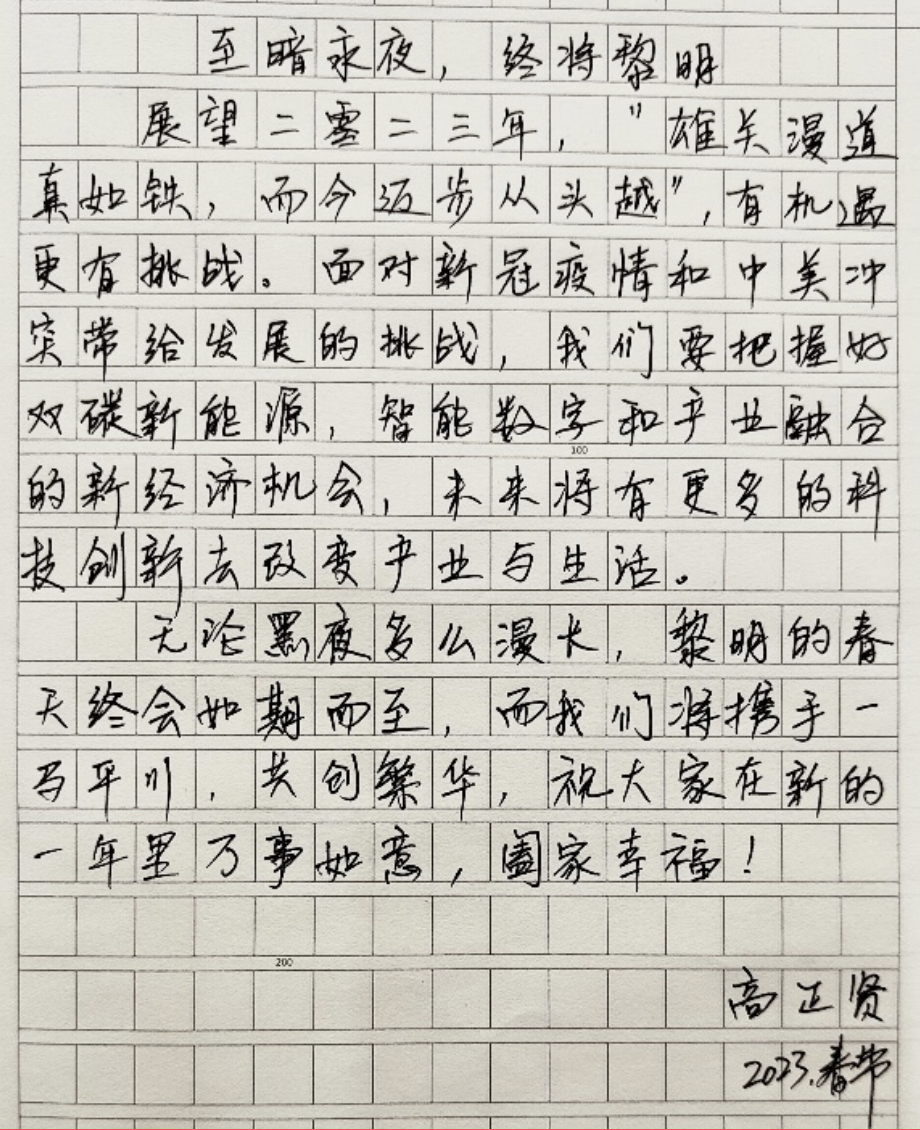 至暗永夜，终将黎明
展望二零二三年，"雄关漫道
真如铁，而今迈步从头越"，有机遇
更有挑战。面对新冠疫情和中美冲
突带给发展的挑战，我们要把握好
双碳新能源，智能数字和产业融合
100
的新经济机会，未来将有更多的科
技创新去改变产业与生活。
无论黑夜多么漫长，黎明的春
天终会如期而至，而我们将携手一
马平川，共创繁华，祝大家在新的
一年里万事如意，阖家幸福！
200
高正贤
2023.春节